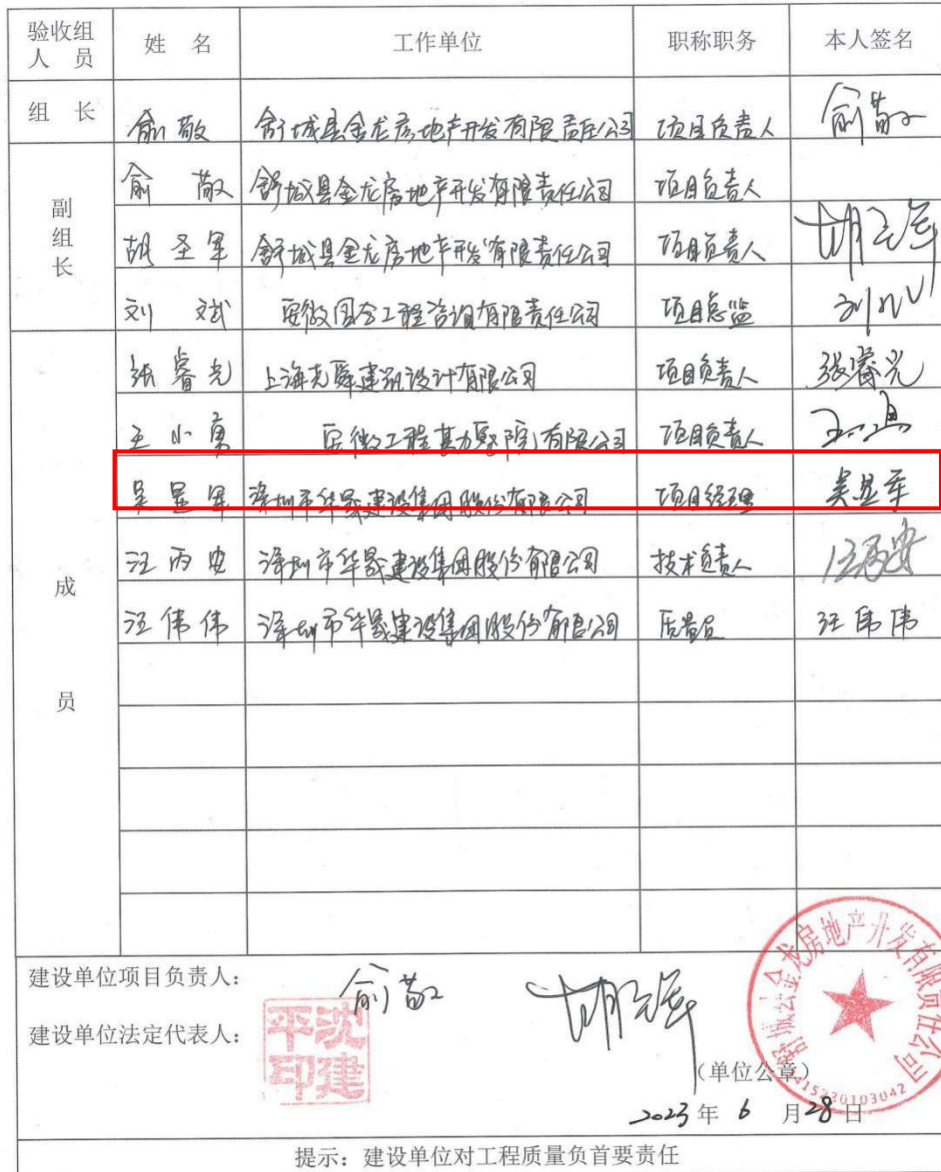 验收组人员 姓名 工作单位 职称职务 本人签名
组长 俞敬 舒城县金龙房地产开发有限责任公司 项目负责人 俞敬
副组长
俞敬 舒城县金龙房地产开发有限责任公司 项目负责人
胡圣军 舒城县金龙房地产开发有限责任公司 项目负责人 胡圣军
刘斌 安徽国合工程咨询有限责任公司 项目总监 刘斌
成员
张睿光 上海尧舜建筑设计有限公司 项目负责人 张睿光
王小勇 有限公司 项目负责人
吴显军 深圳市华晟建设集团股份有限公司 项目经理 吴显军
汪丙安 深圳市华晟建设集团股份有限公司 技术负责人 汪丙安
汪伟伟 深圳市华晟建设集团股份有限公司 质量员 汪伟伟
建设单位项目负责人: 俞敬 胡圣军
建设单位法定代表人: 沈建平印
舒城县金龙房地产开发有限责任公司
(单位公章)
3415230103042
2023 年 6 月 28 日
提示:建设单位对工程质量负首要责任